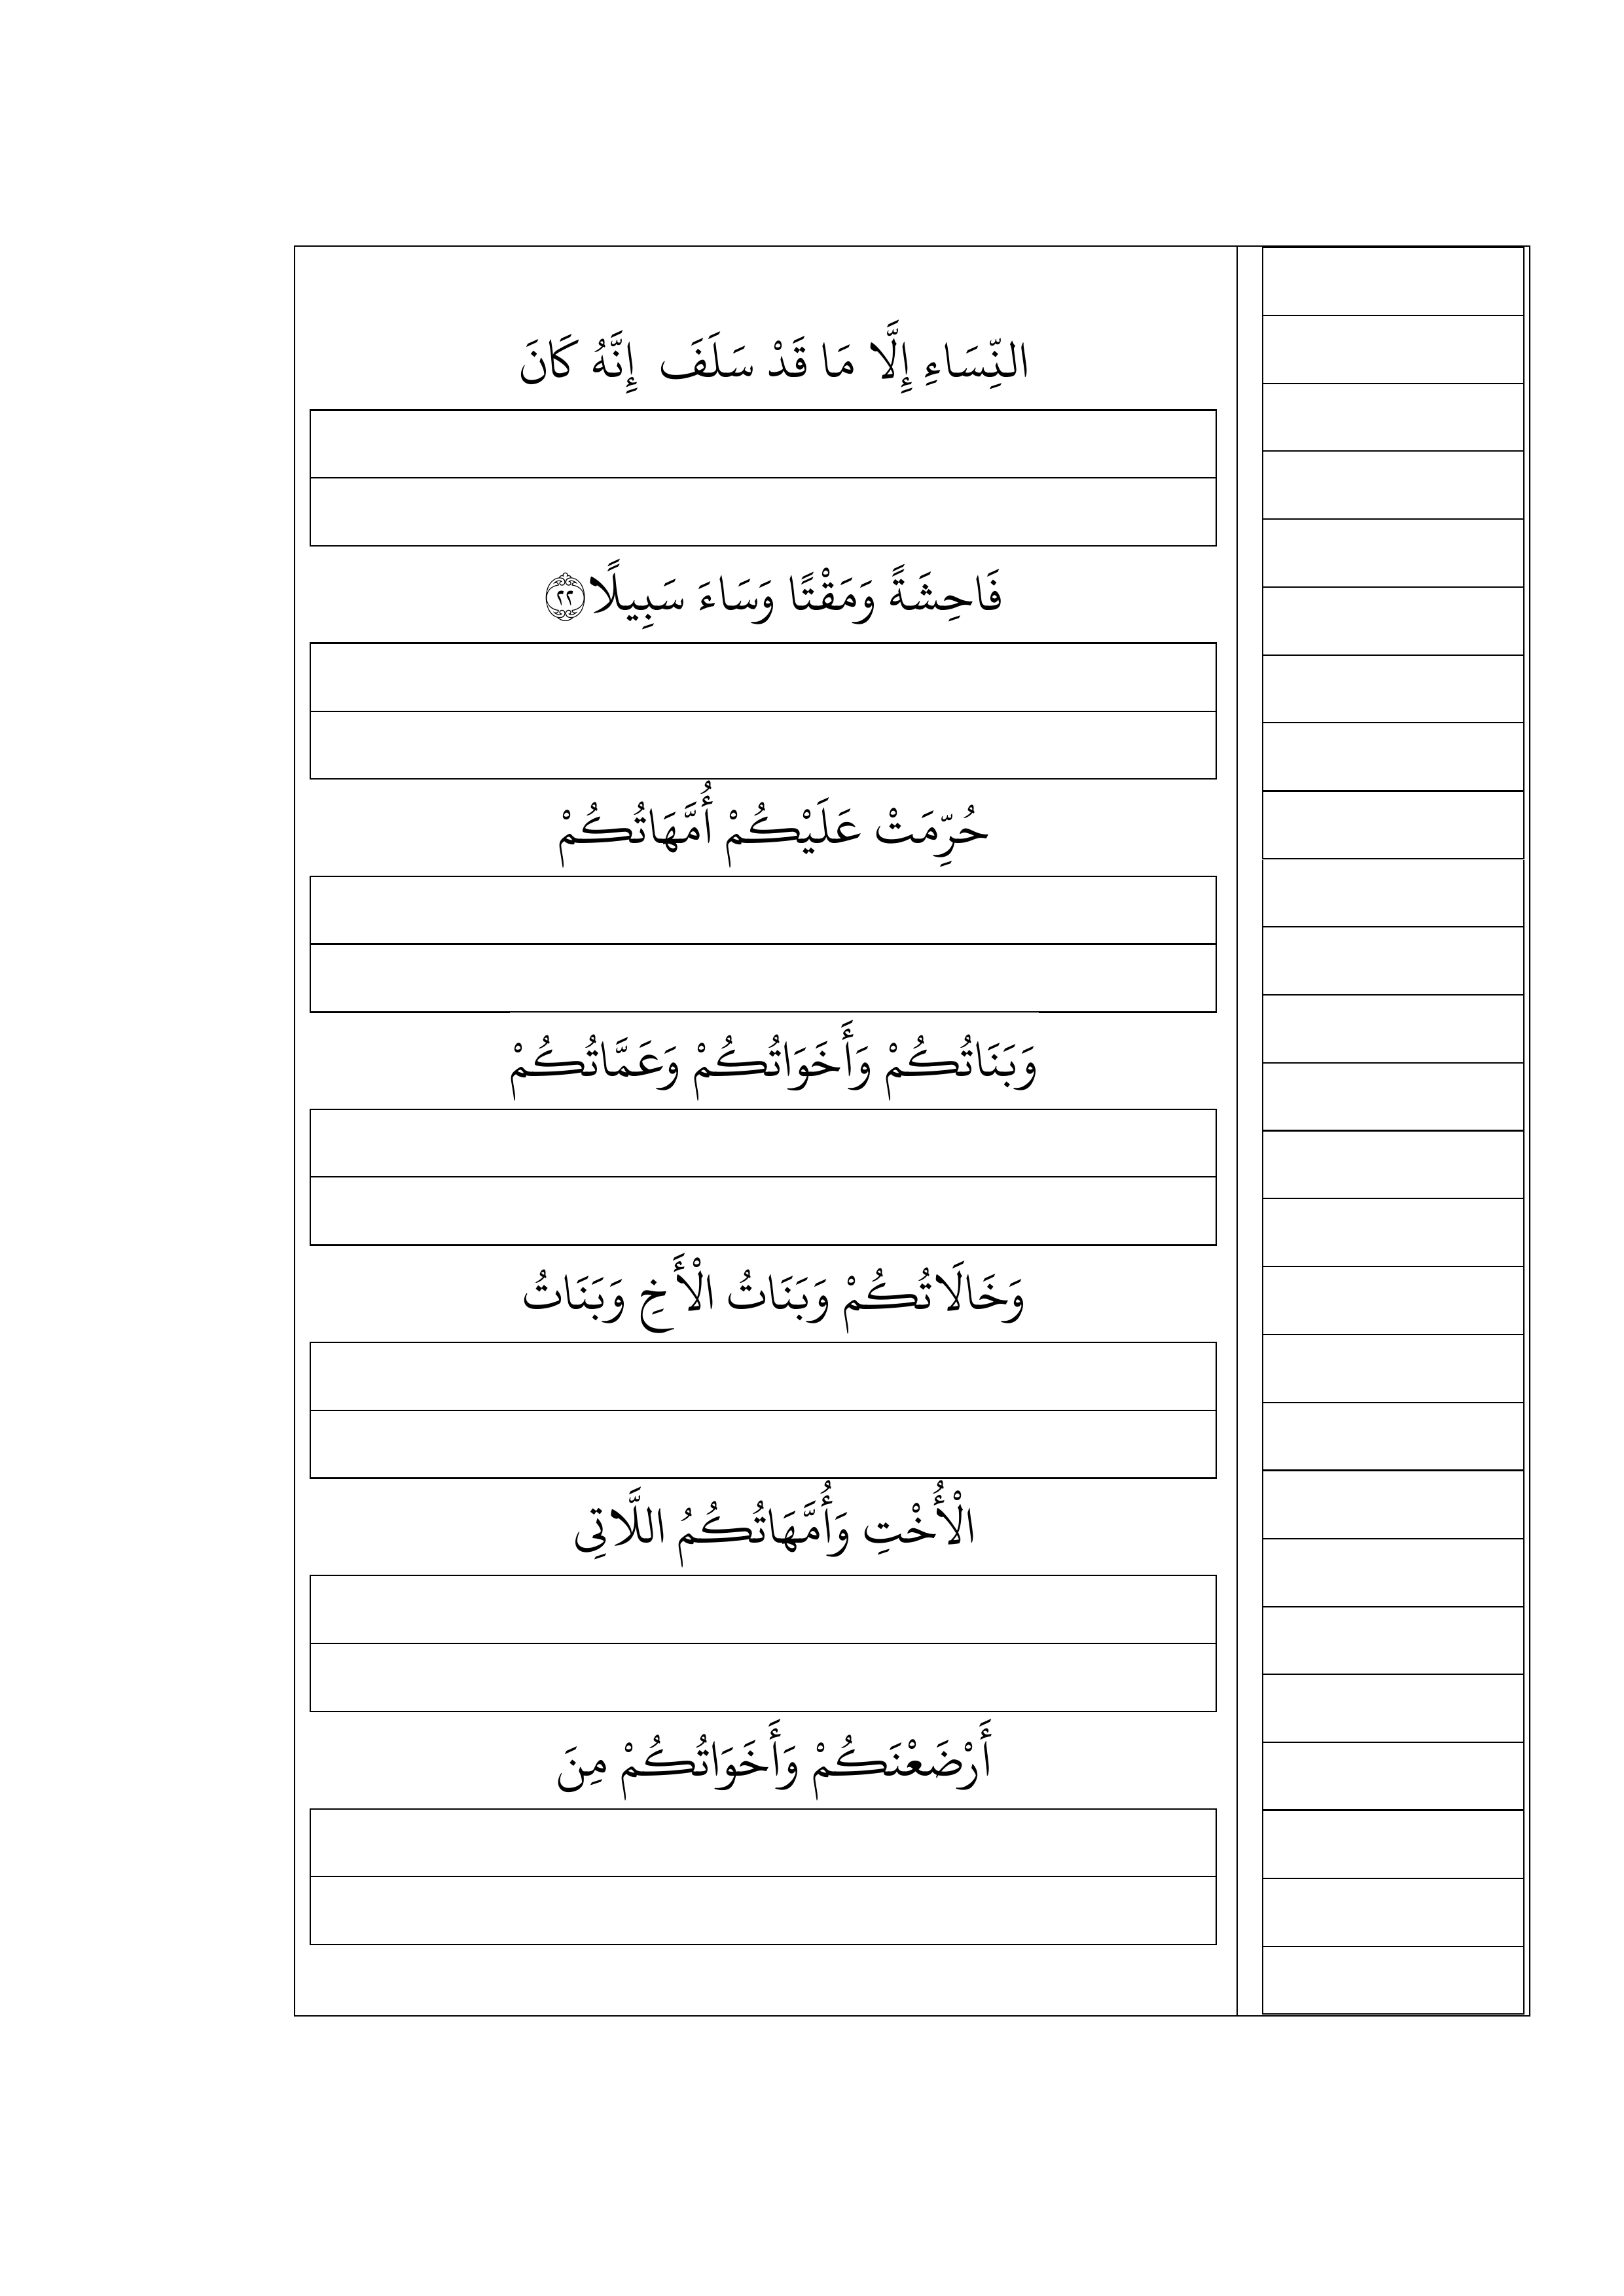 النِّسَاءِ إِلَّا مَا قَدْ سَلَفَ إِنَّهُ كَانَ
فَاحِشَةً وَمَقْتًا وَسَاءَ سَبِيلًا ۝٢٢
حُرِّمَتْ عَلَيْكُمْ أُمَّهَاتُكُمْ
وَبَنَاتُكُمْ وَأَخَوَاتُكُمْ وَعَمَّاتُكُمْ
وَخَالَاتُكُمْ وَبَنَاتُ الْأَخِ وَبَنَاتُ
الْأُخْتِ وَأُمَّهَاتُكُمُ اللَّاتِى
أَرْضَعْنَكُمْ وَأَخَوَاتُكُمْ مِنَ